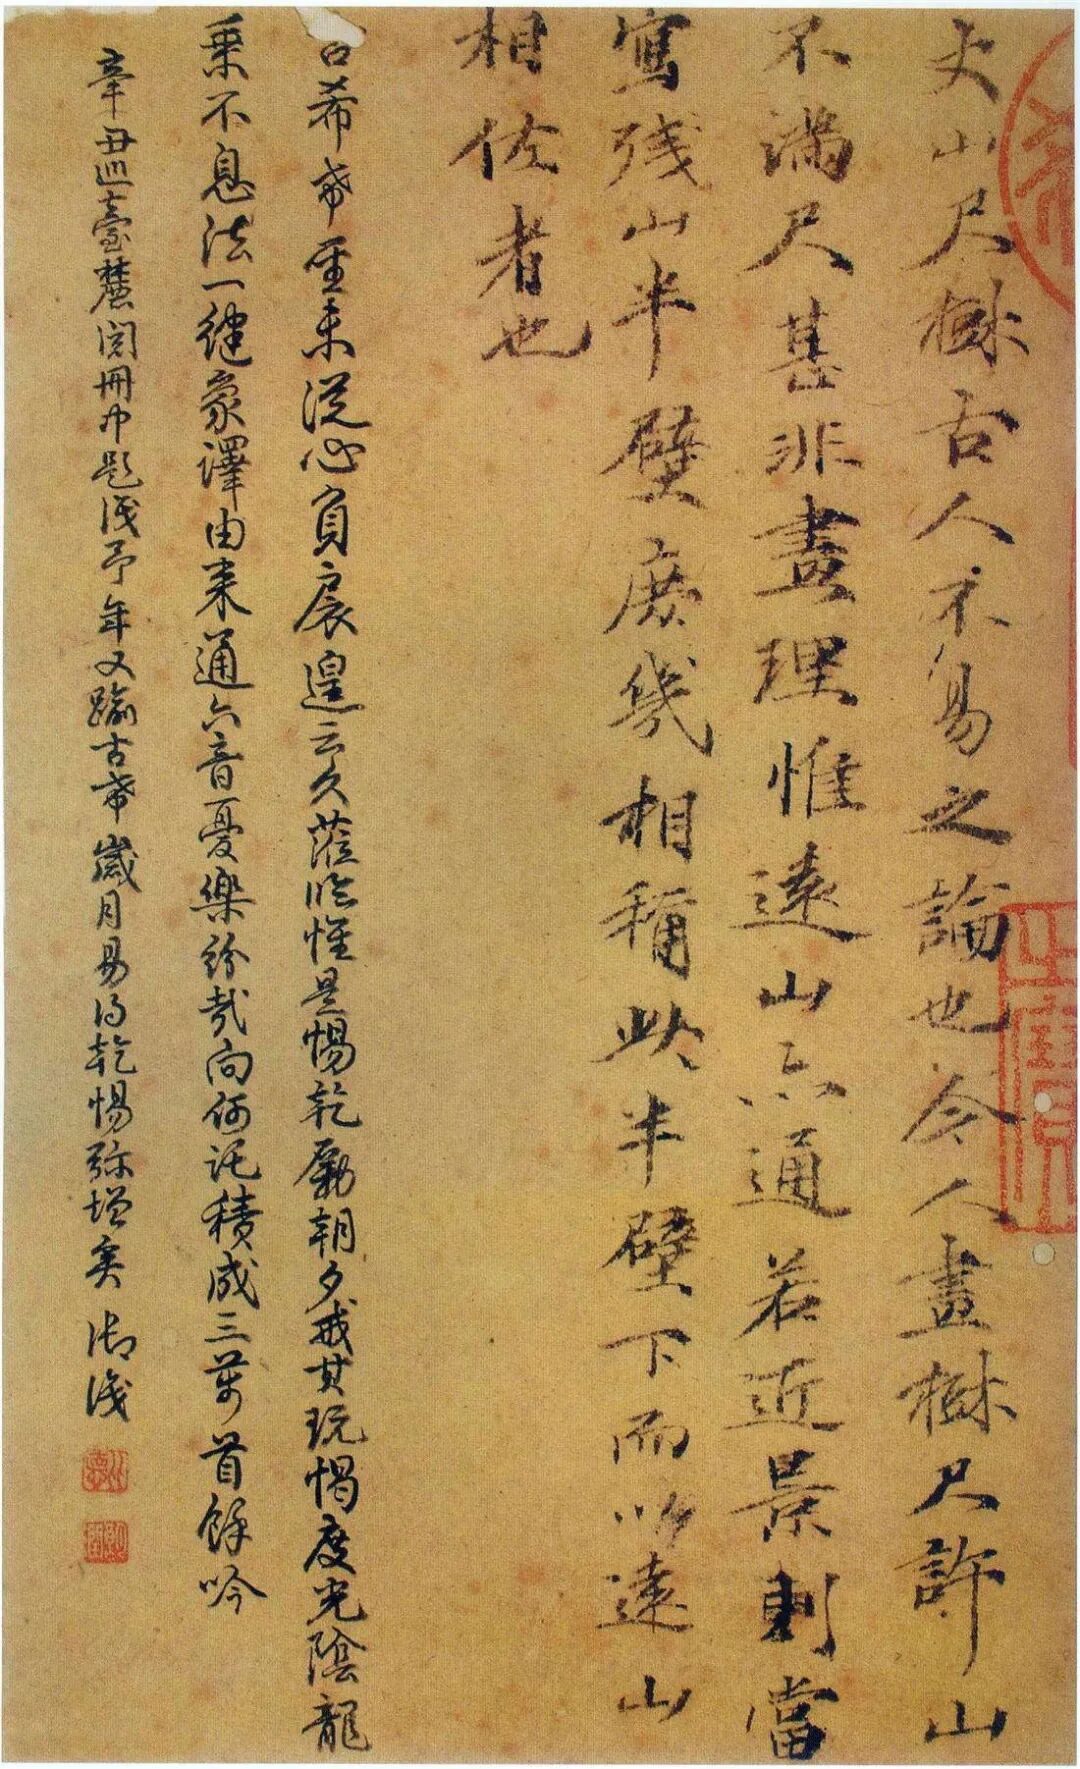 丈山尺樹古人不易之論也今人畫樹尺許山
不滿尺甚非畫理惟遠山亦通若近景則當
寫殘山半壁庶幾相稱此半壁下而以遠山
相佐者也
古希希至未從心負扆遑云久蒞臨惟是惕乾勵朝夕戒其玩愒度光陰龍
乘不息法一健象澤由來通六音憂樂紛哉向何託積成三萬首餘吟
辛丑巡臺麓閱冊中題淺予年又踰古希歲月易得乾惕弥增矣 御識